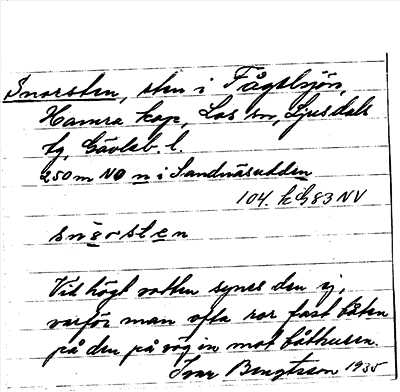 Snorsten, sten i Fågelsjön,
Hamra kap, Los sn, Ljusdals
tg, Gävleb. l.
250 m NO n i Sandnäsudden
104. k G83 NV
snorsten
Vid högt vatten synes den ej,
varför man ofta ror fast båten
på den på väg in mot båthusen.
Ivar Bengtsson 1935